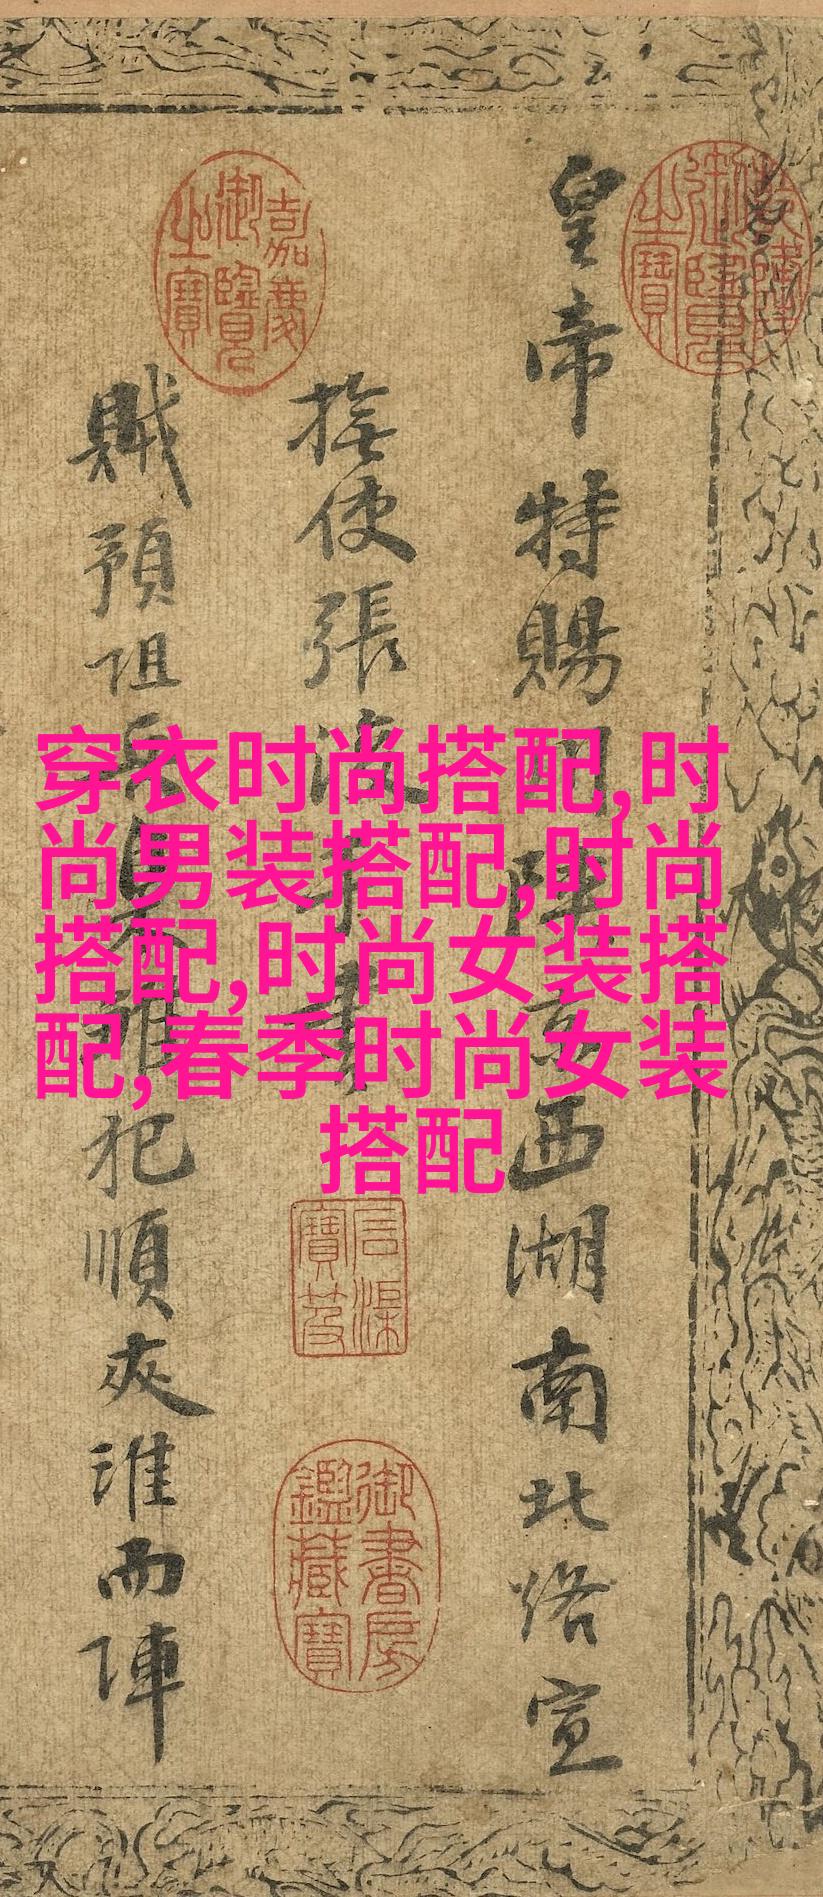 皇帝特賜京西湖南北路宣
撫使張浚手書
賊預阻兵犯順夾淮而陣
乾隆御覽之寶
嘉慶御覽之寶
石渠寶笈
御書房鑑藏寶
穿衣时尚搭配,时
尚男装搭配,时尚
搭配,时尚女装搭
配,春季时尚女装
搭配